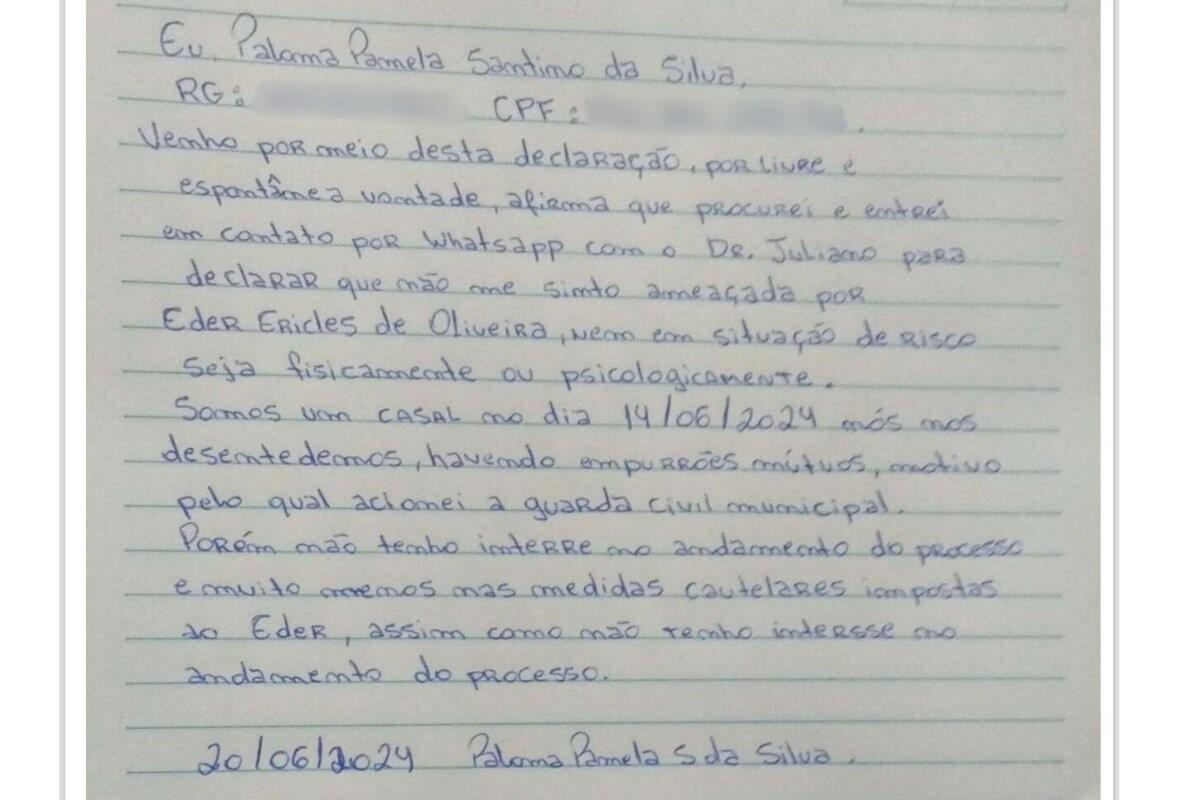 Eu, Paloma Pamela Santino da Silva,
RG: CPF: .
Venho por meio desta declaração, por livre e
espontânea vontade, afirma que procurei e entrei
em contato por Whatsapp com o Dr. Juliano para
declarar que não me sinto ameaçada por
Eder Ericles de Oliveira, nem em situação de risco
Seja fisicamente ou psicologicamente.
Somos um casal no dia 14/06/2024 nós nos
desentedemos, havendo empurrões mútuos, motivo
pelo qual acionei a guarda civil municipal.
Porém não tenho interre no andamento do processo
e muito menos nas medidas cautelares impostas
ao Eder, assim como não tenho intersse no
andamento do processo.
20/06/2024 Paloma Pamela S da Silva.